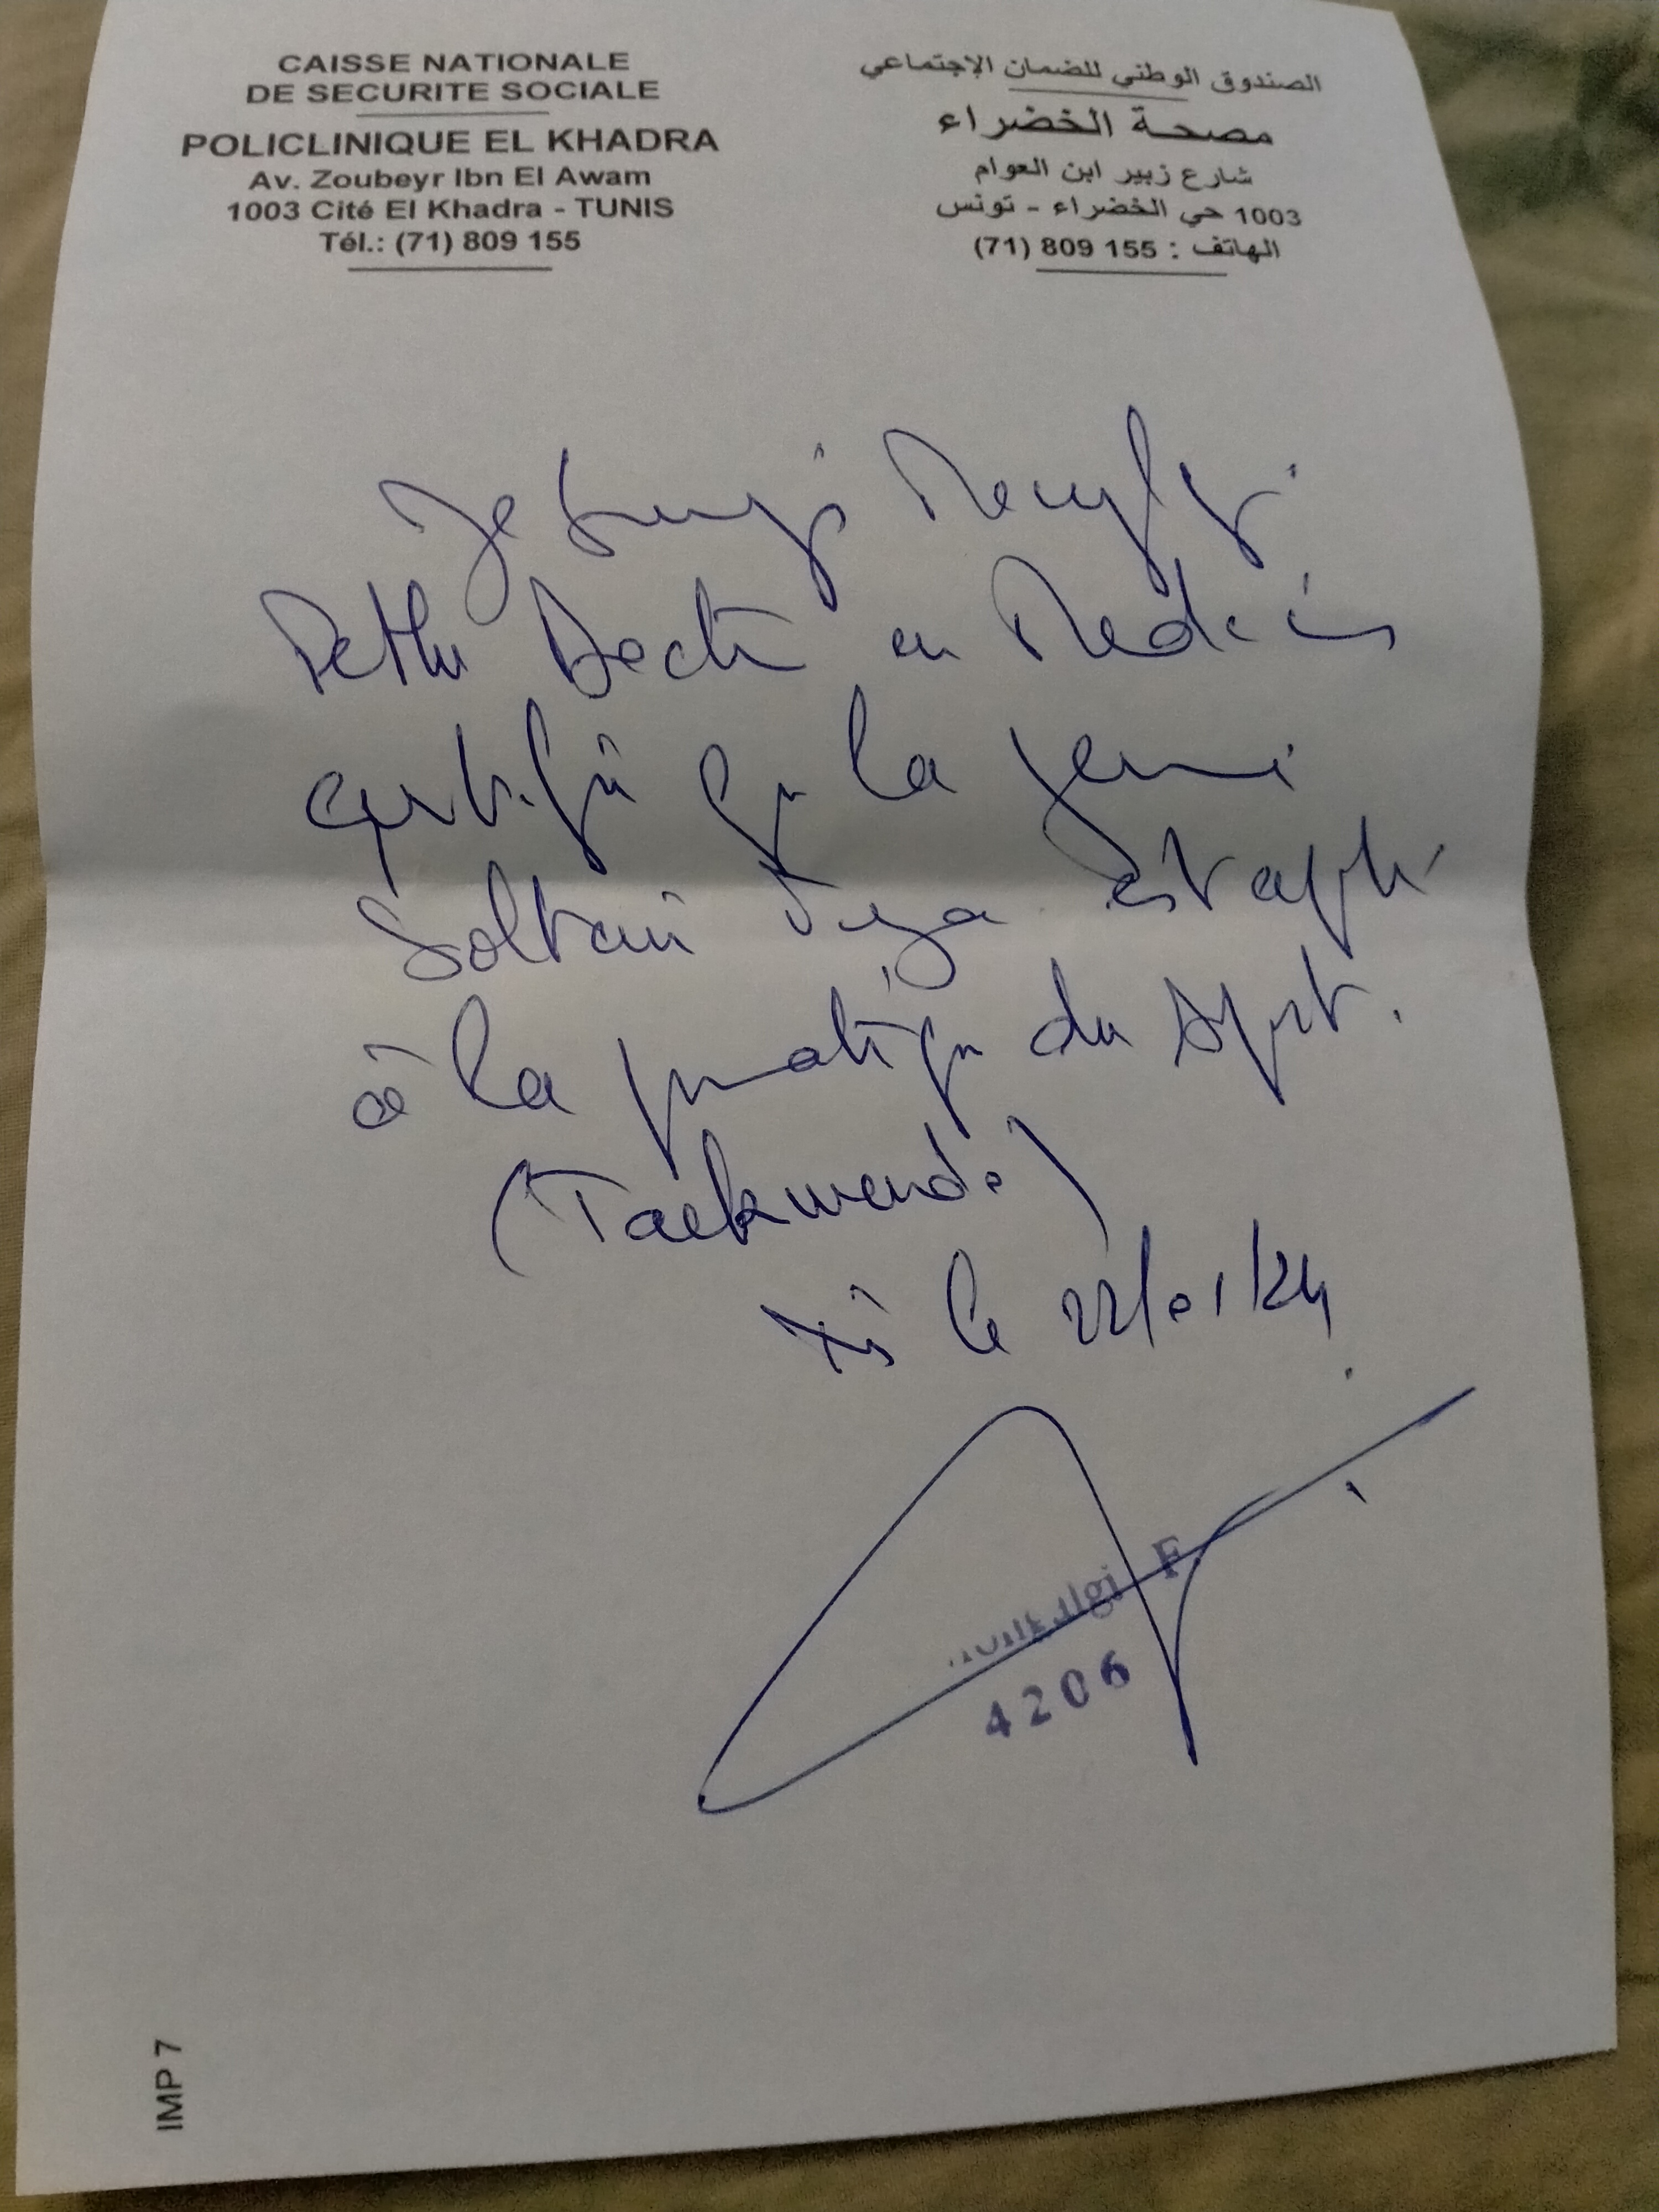 CAISSE NATIONALE
DE SECURITE SOCIALE
POLICLINIQUE EL KHADRA
Av. Zoubeyr Ibn El Awam
1003 Cité El Khadra - TUNIS
Tél.: (71) 809 155
الصندوق الوطني للضمان الإجتماعي
مصحة الخضراء
شارع زبير ابن العوام
1003 حي الخضراء - تونس
الهاتف : 155 809 (71)
Je
en Medecin
certifie que la jeune
Soltani est apte
à la pratique du sport.
(Taekwendo)
Ts le 22/01/24
F
4206
IMP 7